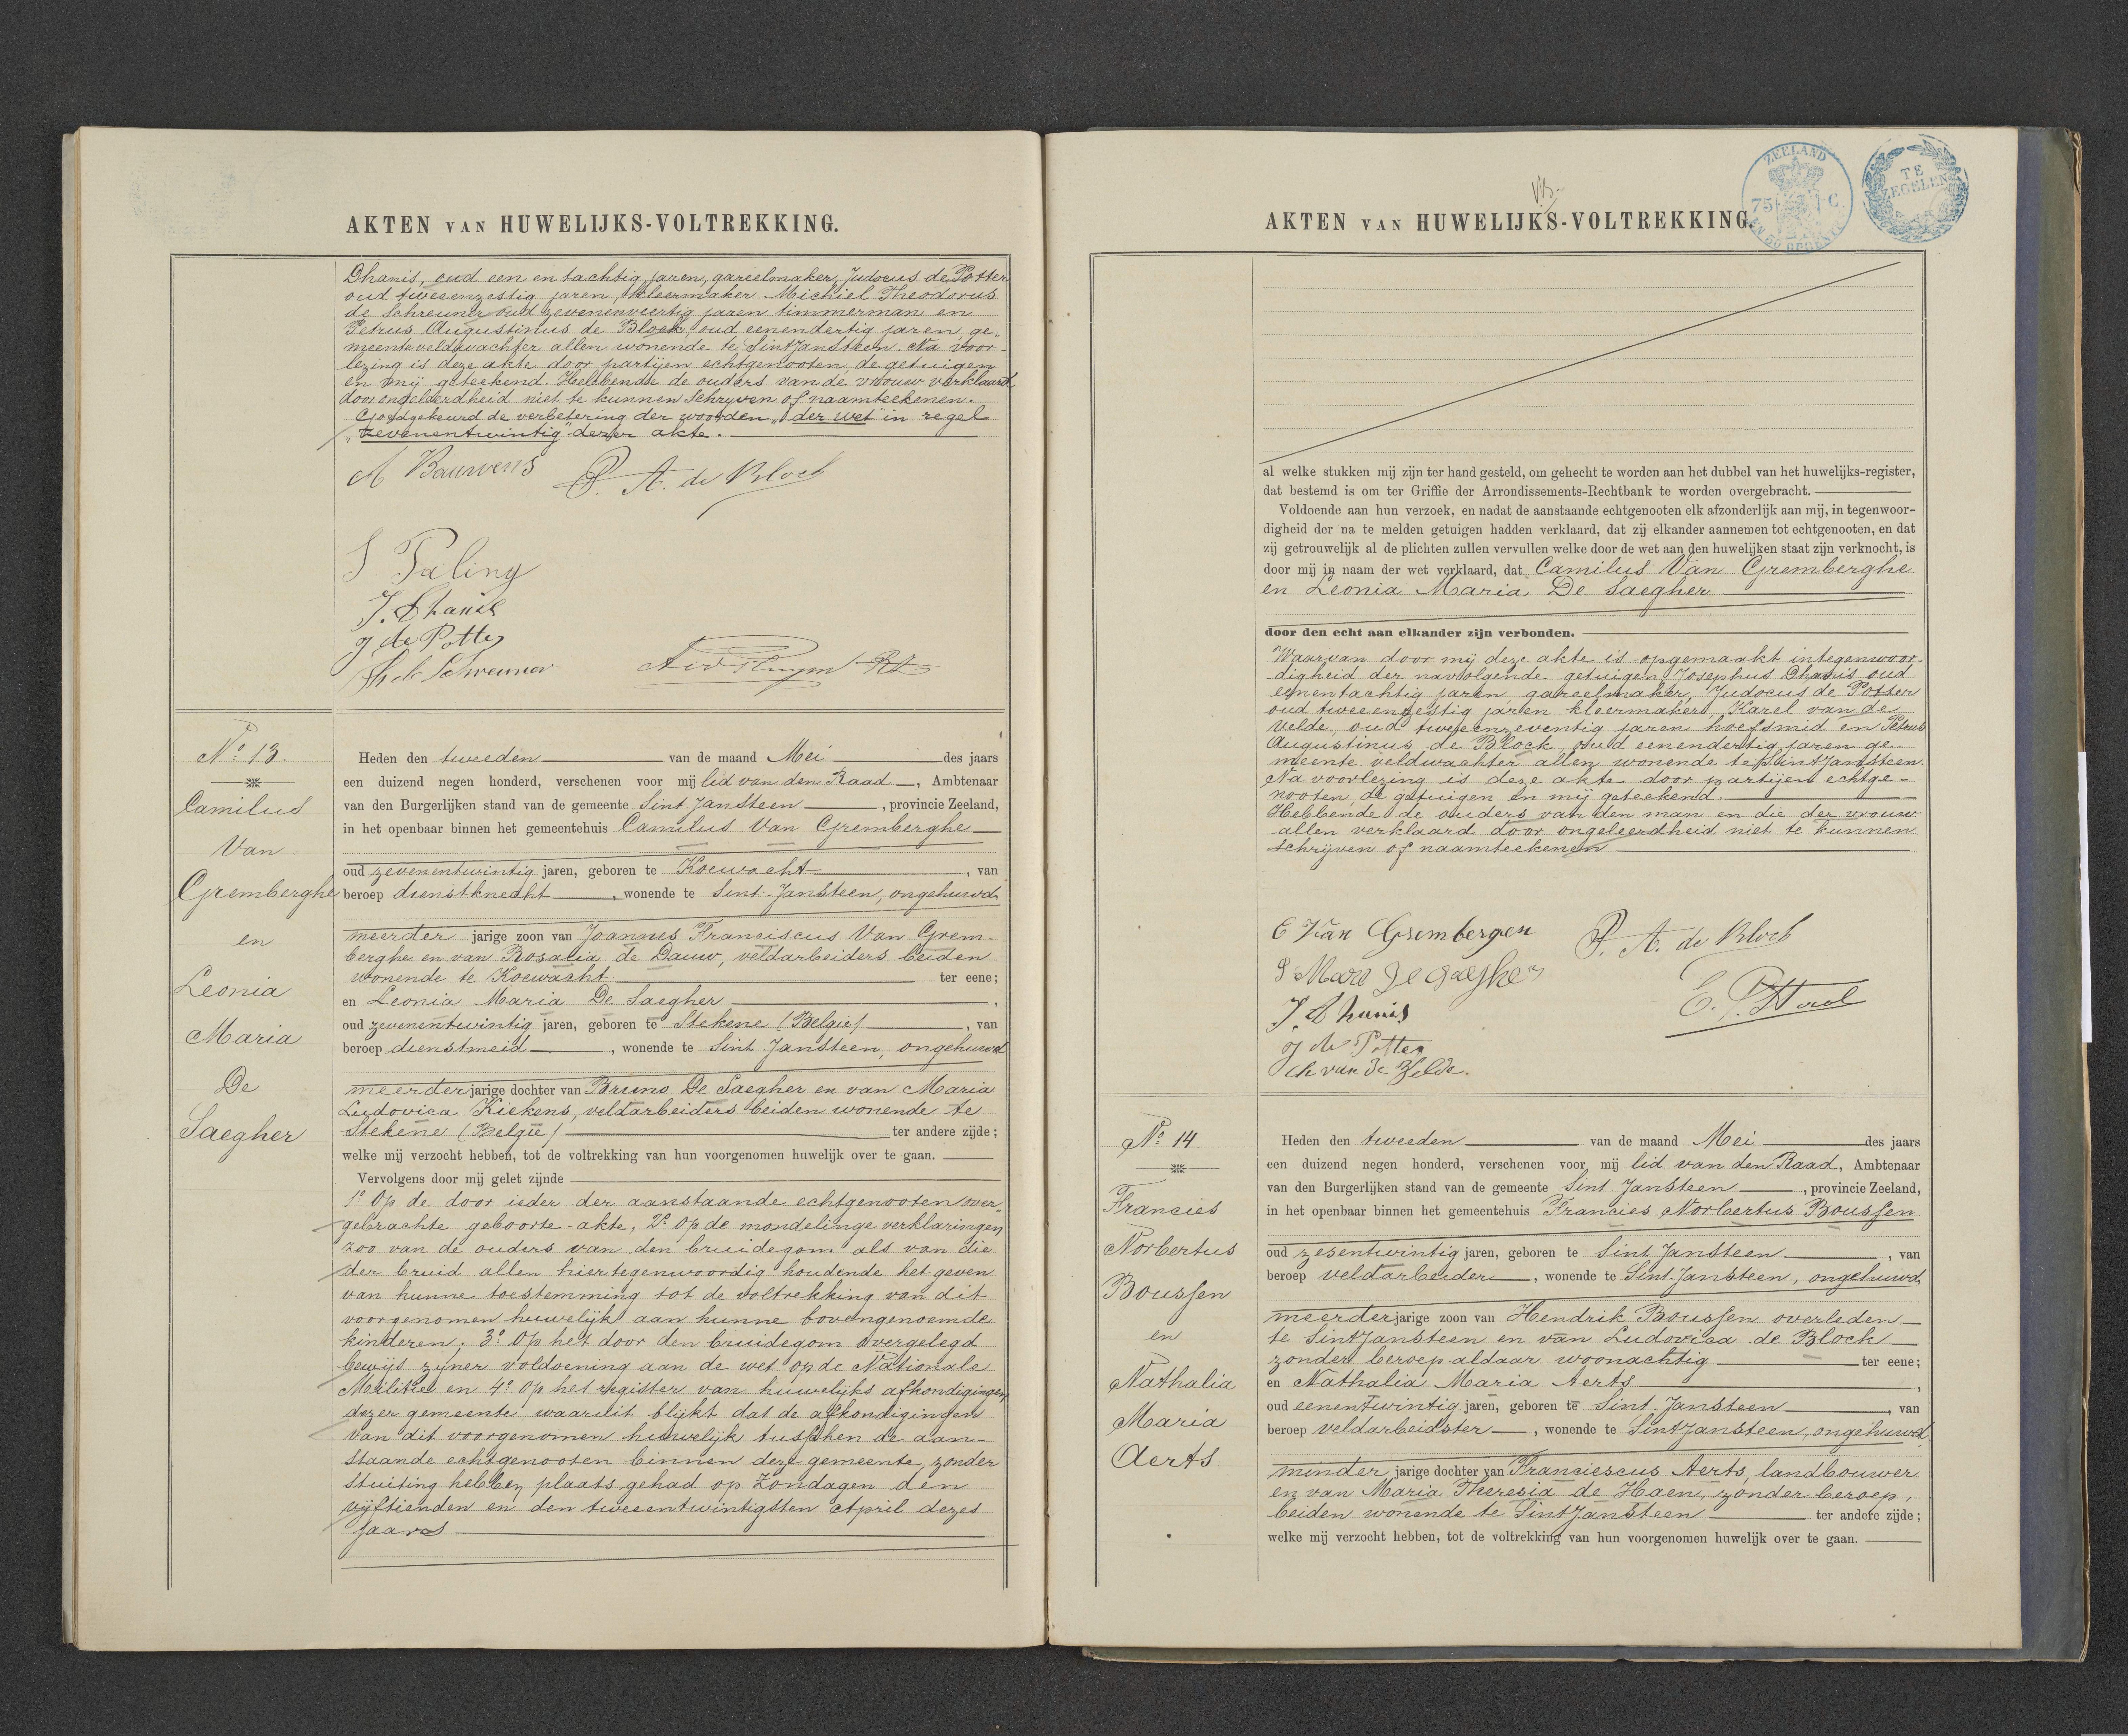 AKTEN VAN HUWELIJKS-VOLTREKKING.
Dhanis, oud een en tachtig jaren, gareelmaker, Judocus de Potter
oud tweeenzestig jaren, kleermaker Michiel Theodorus
de Schreuner oud zevenenveertig jaren timmerman en
Petrus Augustinus de Block, oud eenendertig jaren ge„
meenteveldwachter allen wonende te Sint Jansteen. Na voor-
lezing is deze akte door partijen echtgenooten, de getuigen
en mij geteekend. Hebbende de ouders van de vrouw verklaard
door ongeleerdheid niet te kunnen Schrijven of naamteekenen.
Goedgekeurd de verbetering der woorden „der wet" in regel
„zevenentwintig" dezer akte.
A Bauwens P. A. de Block
S Paling
J. Dhanis
J de Potter
Th de Schreuner
No. 13.
Camilus
Van
Gremberghe
en
Leonia
Maria
De
Saegher
Heden den tweeden van de maand Mei des jaars
een duizend negen honderd, verschenen voor mij lid van den Raad, Ambtenaar
van den Burgerlijken stand van de gemeente Sint Jansteen, provincie Zeeland,
in het openbaar binnen het gemeentehuis Camilus Van Gremberghe
oud zevenentwintig jaren, geboren te Koewacht, van
beroep dienstknecht, wonende te Sint Jansteen, ongehuwd
meerder jarige zoon van Joannes Franciscus Van Grem-
berghe en van Rosalia de Dauw, veldarbeiders beiden
wonende te Koewacht ter eene;
en Leonia Maria De Saegher,
oud zevenentwintig jaren, geboren te Stekene (België), van
beroep dienstmeid, wonende te Sint Jansteen, ongehuwd
meerder jarige dochter van Bruno De Saegher en van Maria
Ludovica Kiekens, veldarbeiders beiden wonende te
Stekene (België) ter andere zijde;
welke mij verzocht hebben, tot de voltrekking van hun voorgenomen huwelijk over te gaan.
Vervolgens door mij gelet zijnde
1o. Op de door ieder der aanstaande echtgenooten over„
gebrachte geboorte-akte, 2o. Op de mondelinge verklaringen,
zoo van de ouders van den bruidegom als van die
der bruid allen hiertegenwoordig houdende het geven
van hunne toestemming tot de voltrekking van dit
voorgenomen huwelijk aan hunne bovengenoemde
kinderen; 3o. Op het door den bruidegom overgelegd
bewijs zijner voldoening aan de wet op de Nationale
Militie en 4o Op het register van huwelijks afkondigingen,
dezer gemeente waaruit blijkt dat de afkondigingen
van dit voorgenomen huwelijk tusschen de aan-
Staande echtgenooten binnen deze gemeente, zonder
Stuiting hebben plaats gehad op Zondagen den
vijftienden en den tweeentwintigsten April dezes
jaars
AKTEN VAN HUWELIJKS-VOLTREKKING.
ZEELAND
75 C.
TE
ZEGELEN
al welke stukken mij zijn ter hand gesteld, om gehecht te worden aan het dubbel van het huwelijks-register,
dat bestemd is om ter Griffie der Arrondissements-Rechtbank te worden overgebracht.
Voldoende aan hun verzoek, en nadat de aanstaande echtgenooten elk afzonderlijk aan mij, in tegenwoor-
digheid der na te melden getuigen hadden verklaard, dat zij elkander aannemen tot echtgenooten, en dat
zij getrouwelijk al de plichten zullen vervullen welke door de wet aan den huwelijken staat zijn verknocht, is
door mij in naam der wet verklaard, dat Camilus Van Gremberghe
en Leonia Maria De Saegher
door den echt aan elkander zijn verbonden.
Waarvan door mij deze akte is opgemaakt in tegenwoor-
digheid der navolgende getuigen Josephus Dhanis oud
eenentachtig jaren gareelmaker, Judocus de Potter
oud tweeenzestig jaren kleermaker, Karel van de
Velde, oud tweeenzeventig jaren hoefsmid en Petrus
Augustinus de Block, oud eenendertig jaren ge-
meente veldwachter allen wonende te Sint Jansteen.
Na voorlezing is deze akte door partijen echtge-
nooten, de getuigen en mij geteekend.
Hebbende de ouders van den man en die der vrouw
allen verklaard door ongeleerdheid niet te kunnen
Schrijven of naamteekenen
C Van Grembergen P. A. de Block
J. Dhanis
J de Potter
Ch van de Velde.
No. 14.
Francies
Norbertus
Boussen
en
Nathalia
Maria
Aerts
Heden den tweeden van de maand Mei des jaars
een duizend negen honderd, verschenen voor mij lid van den Raad, Ambtenaar
van den Burgerlijken stand van de gemeente Sint Jansteen, provincie Zeeland,
in het openbaar binnen het gemeentehuis Francies Norbertus Boussen
oud zesentwintig jaren, geboren te Sint Jansteen, van
beroep veldarbeider, wonende te Sint Jansteen, ongehuwd
meerder jarige zoon van Hendrik Boussen overleden
te Sint Jansteen en van Ludovica de Block
zonder beroep aldaar woonachtig ter eene;
en Nathalia Maria Aerts,
oud eenentwintig jaren, geboren te Sint Jansteen, van
beroep veldarbeidster, wonende te Sint Jansteen, ongehuwd
minder jarige dochter van Franciescus Aerts, landbouwer
en van Maria Theresia de Haen, zonder beroep,
beiden wonende te Sint Jansteen ter andere zijde;
welke mij verzocht hebben, tot de voltrekking van hun voorgenomen huwelijk over te gaan.